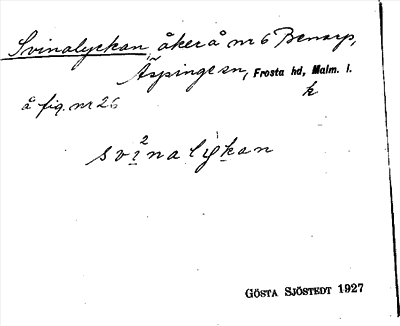 Svinalyckan, åker å nr 6 Benarp,
Äspinge sn, Frosta hd, Malm. l.
k
å fig. nr 26
svi²nalykan
GÖSTA SJÖSTEDT 1927